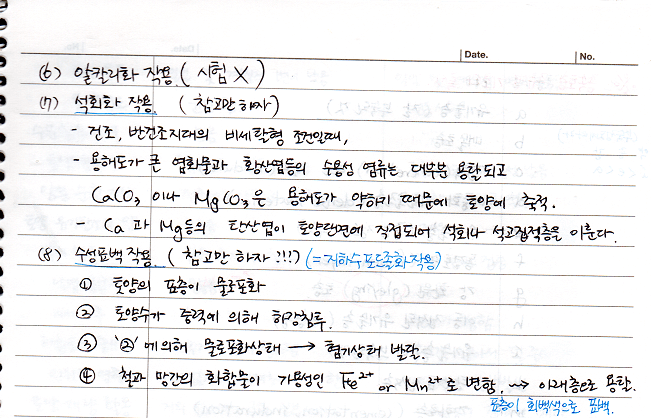 Date.
No.
(6) 알칼리화 작용. ( 시험 X )
(7) 석회화 작용. ( 참고만 하자 )
- 건조, 반건조지대의 비세탈형 조건일때,
- 용해도가 큰 염화물과 황산염등의 수용성 염류는 대부분 용탈되고
CaCO₃ 이나 MgCO₃은 용해도가 약하기 때문에 토양에 축적.
- Ca 과 Mg등의 탄산염이 토양단면에 직접되어 석회나 석고집적층을 이룬다.
(8) 수성표백 작용. ( 참고만 하자 !!! ) (= 지하수 포드졸화 작용)
① 토양의 표층이 물로포화
② 토양수가 중력에 의해 하강침투.
③ '②'에 의해 물로포화상태 → 혐기상태 발달.
④ 철과 망간의 화합물이 가용성인 Fe²⁺ or Mn²⁺로 변함. ⇝ 아래층으로 용탈.
표층이 회백색으로 표백.